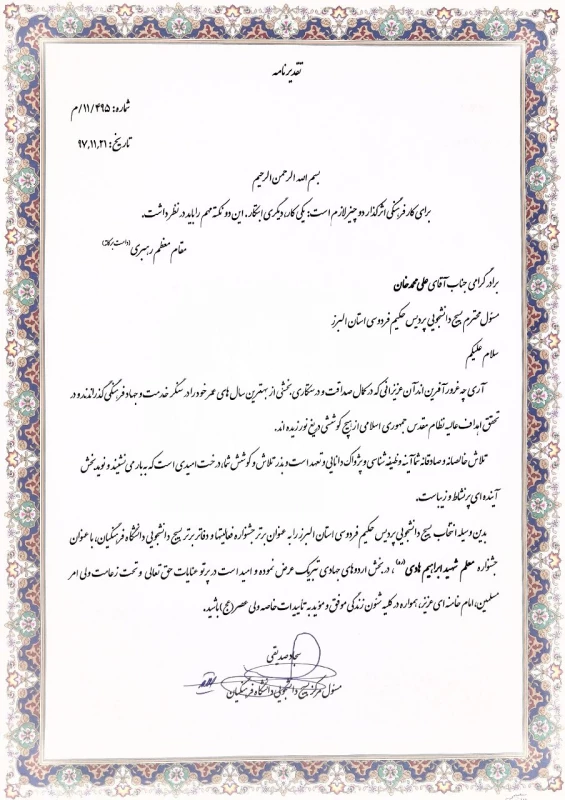 تقدیرنامه
شماره: ۱۱/۴۹۵/م
تاریخ: ۹۷,۱۱,۲۱
بسم الله الرحمن الرحیم
برای کار فرهنگی اثرگذار دو چیز لازم است: یکی کار، دیگری ابتکار. این دو نکته مهم را باید در نظر داشت.
مقام معظم رهبری (دامت برکاته)
برادر گرامی جناب آقای علی محمدخان
مسئول محترم بسیج دانشجویی پردیس حکیم فردوسی استان البرز
سلام علیکم
آری چه غرورآفرین اند آن عزیزانی که در کمال صداقت و درستکاری بخشی از بهترین سال های عمر خود را در سنگر خدمت و جهاد فرهنگی گذراندند و در
تحقق اهداف عالیه نظام مقدس جمهوری اسلامی از هیچ کوششی دریغ نورزیده اند.
تلاش خالصانه و صادقانه شما آینه وظیفه شناسی و پژواک دانایی و تعهد است و بذر تلاش و کوشش شما، درخت امیدی است که به باری نشیند و نوید بخش
آینده ای پر نشاط و زیباست.
بدین وسیله انتخاب بسیج دانشجویی پردیس حکیم فردوسی استان البرز را به عنوان برتر جشنواره فعالیتها و دفاتر برتر بسیج دانشجویی دانشگاه فرهنگیان، با عنوان
جشنواره معلم شهید ابراهیم هادی(ره)، در بخش اردوهای جهادی تبریک عرض نموده و امید است در پرتو عنایات حق تعالی و تحت زعامت ولی امر
مسلمین، امام خامنه ای عزیز، همواره در کلیه شئون زندگی موفق و مؤید به تاییدات خاصه ولی عصر(عج) باشید.
سجاد صدیقی
مسئول مرکز بسیج دانشجویی دانشگاه فرهنگیان